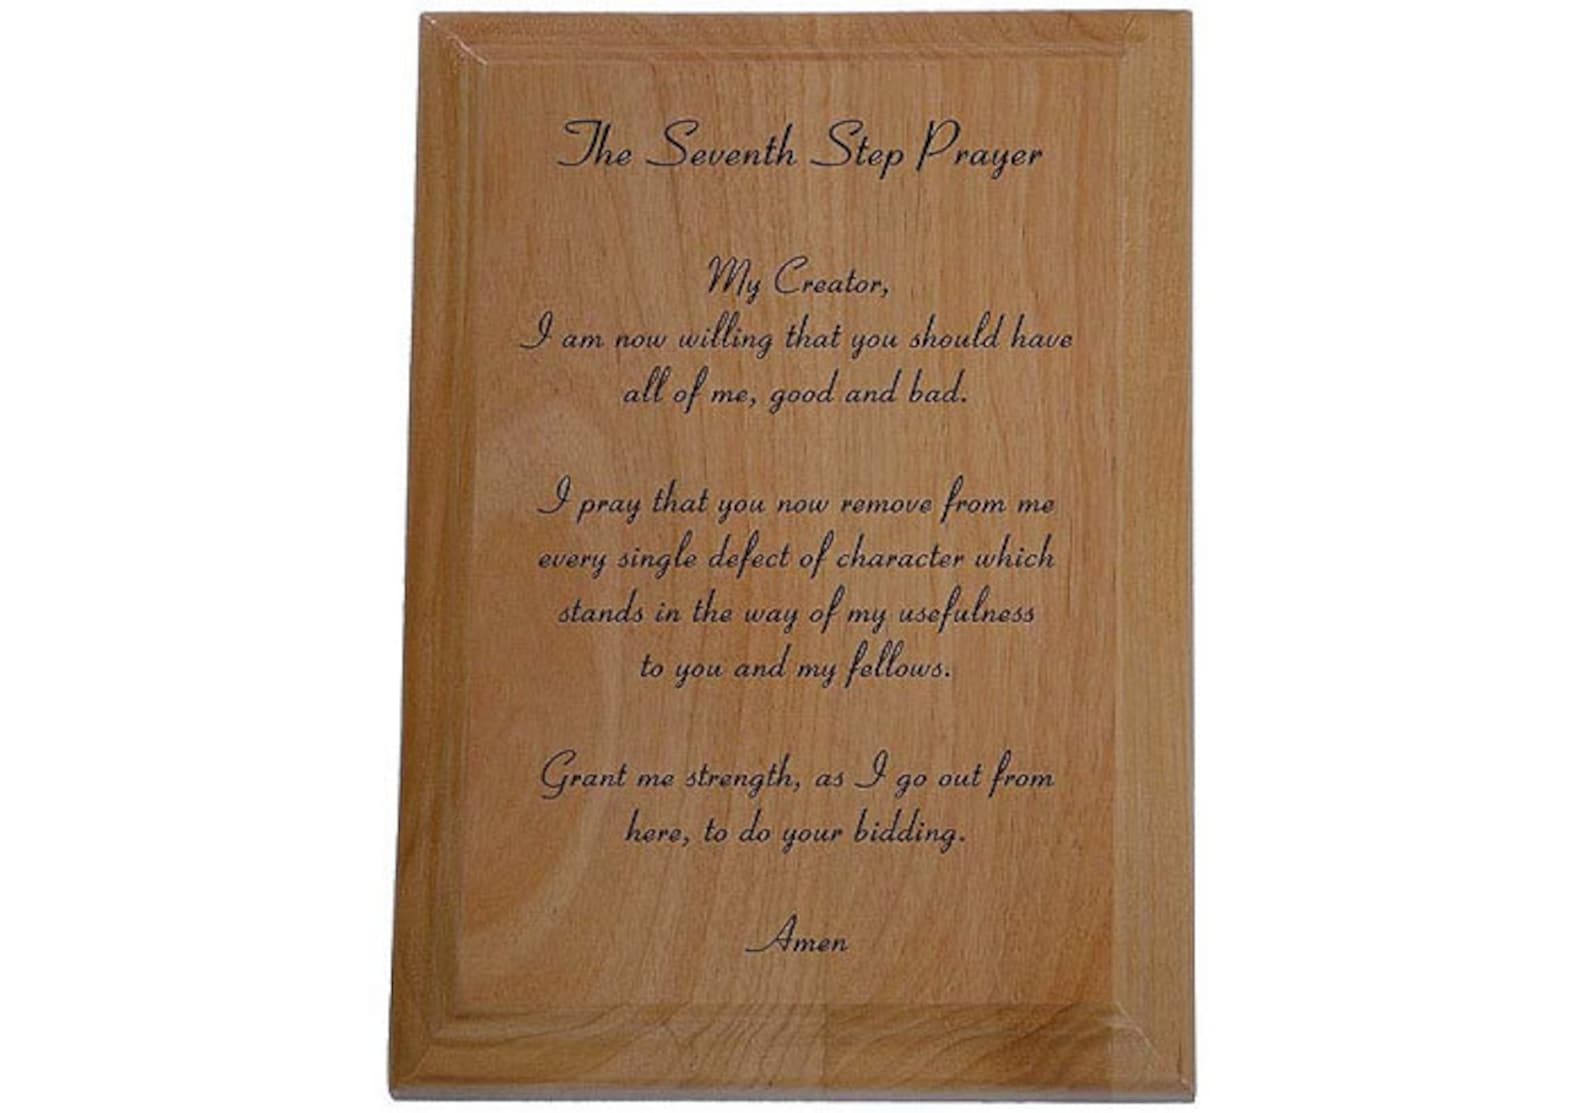 The Seventh Step Prayer
My Creator,
I am now willing that you should have
all of me, good and bad.
I pray that you now remove from me
every single defect of character which
stands in the way of my usefulness
to you and my fellows.
Grant me strength, as I go out from
here, to do your bidding.
Amen